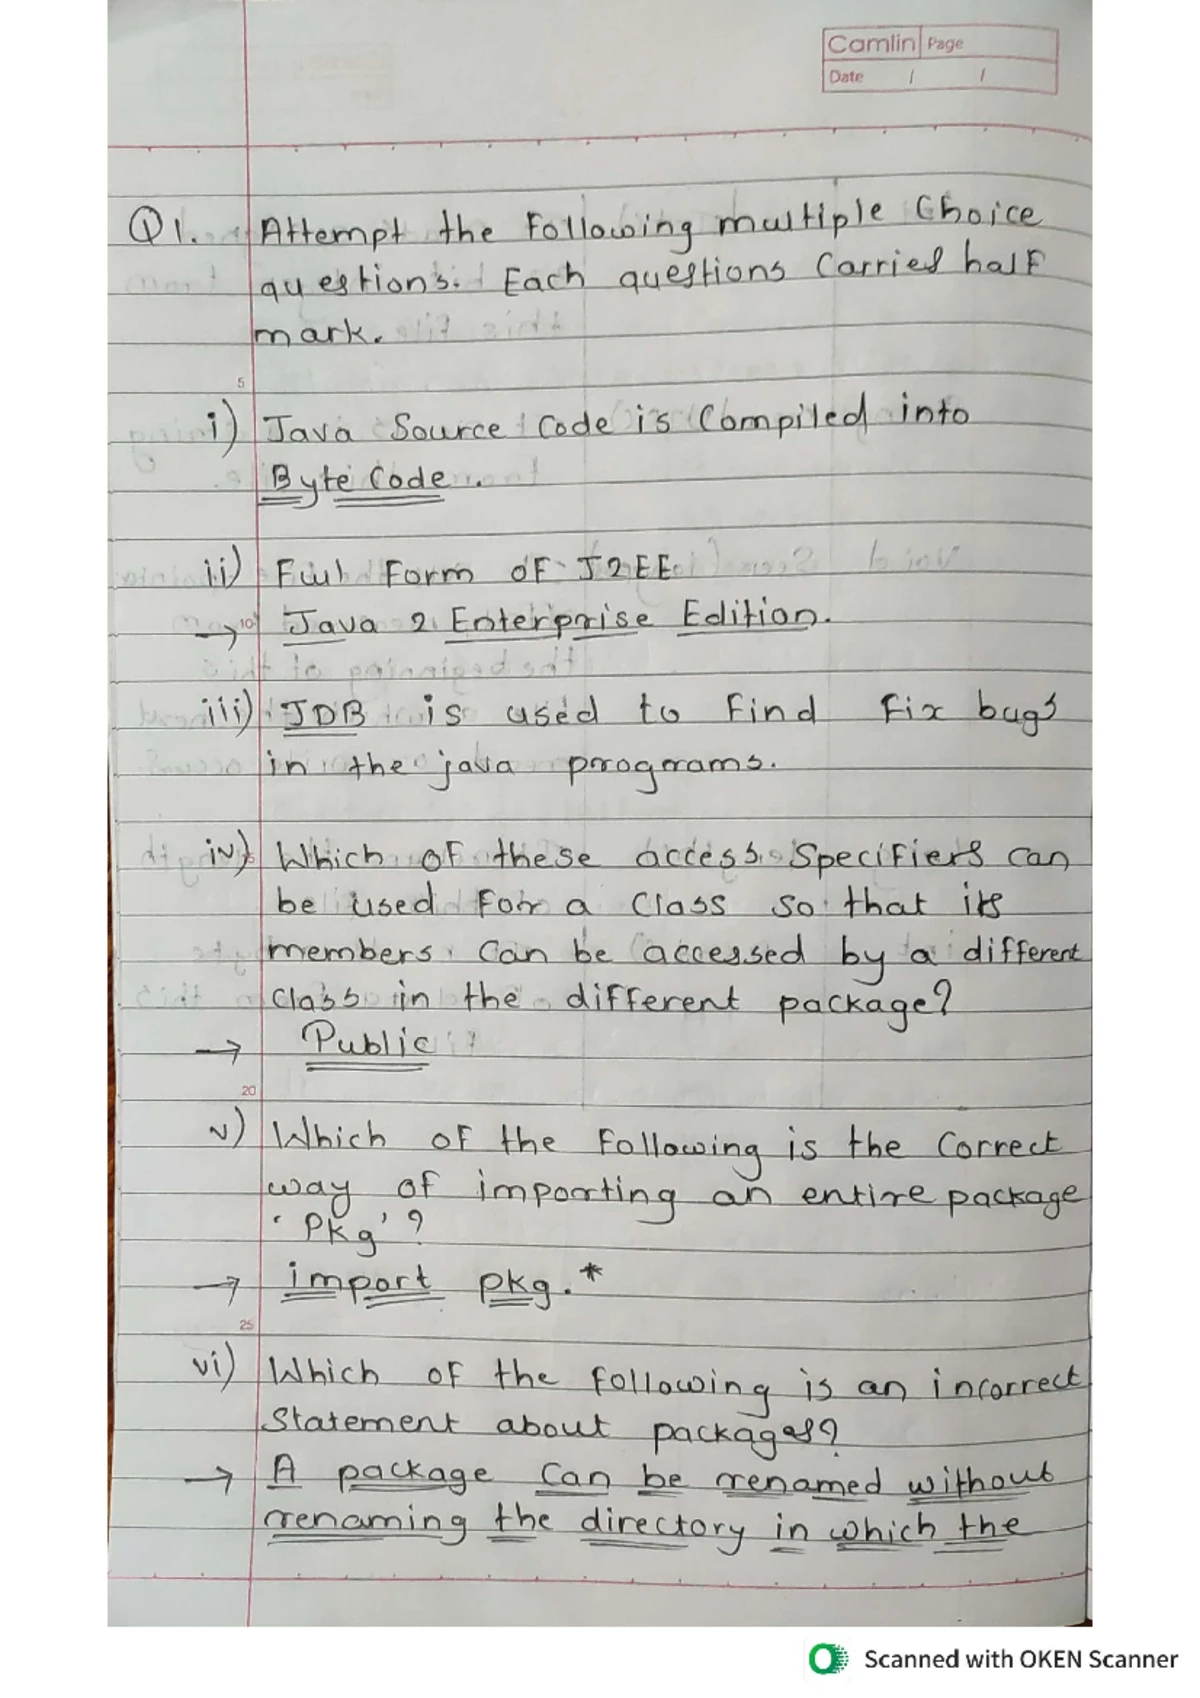 Camlin Page
Date / /
Q1. Attempt the following multiple Choice
questions. Each questions Carried half
mark.
5
i) Java Source Code is Compiled into
Byte Code.
ii) Full Form of J2EE
10
→ Java 2 Enterprise Edition.
iii) JDB is used to find fix bugs
in the java programs.
iv) Which of these access Specifiers can
be used for a Class so that its
members Can be accessed by a different
Class in the different package?
→ Public
20
v) Which of the following is the Correct
way of importing an entire package
'Pkg'?
→ import pkg.*
25
vi) Which of the following is an incorrect
Statement about packages?
→ A package Can be renamed without
renaming the directory in which the
Scanned with OKEN Scanner